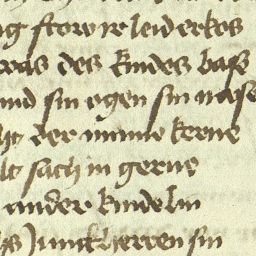 g stow ir leid erkos
was des kindes bas
und sin ogen sin nase
der minne kerne
sach in gerne
under kindelin
Junkherren sin